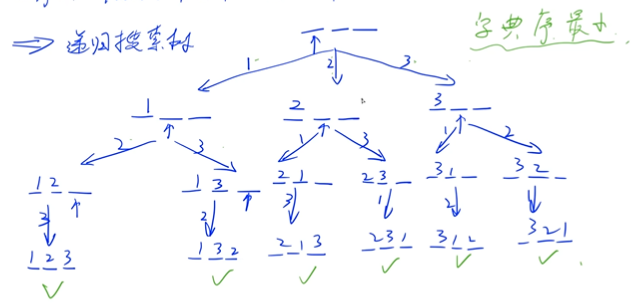 字典序最小
⇒ 递归搜索树
_ _ _
1 2 3
1 _ _ 2 _ _ 3 _ _
2 3 1 3 1 2
1 2 _ 1 3 _ 2 1 _ 2 3 _ 3 1 _ 3 2 _
3 2 3 1 2 1
1 2 3 1 3 2 2 1 3 2 3 1 3 1 2 3 2 1
✓ ✓ ✓ ✓ ✓ ✓